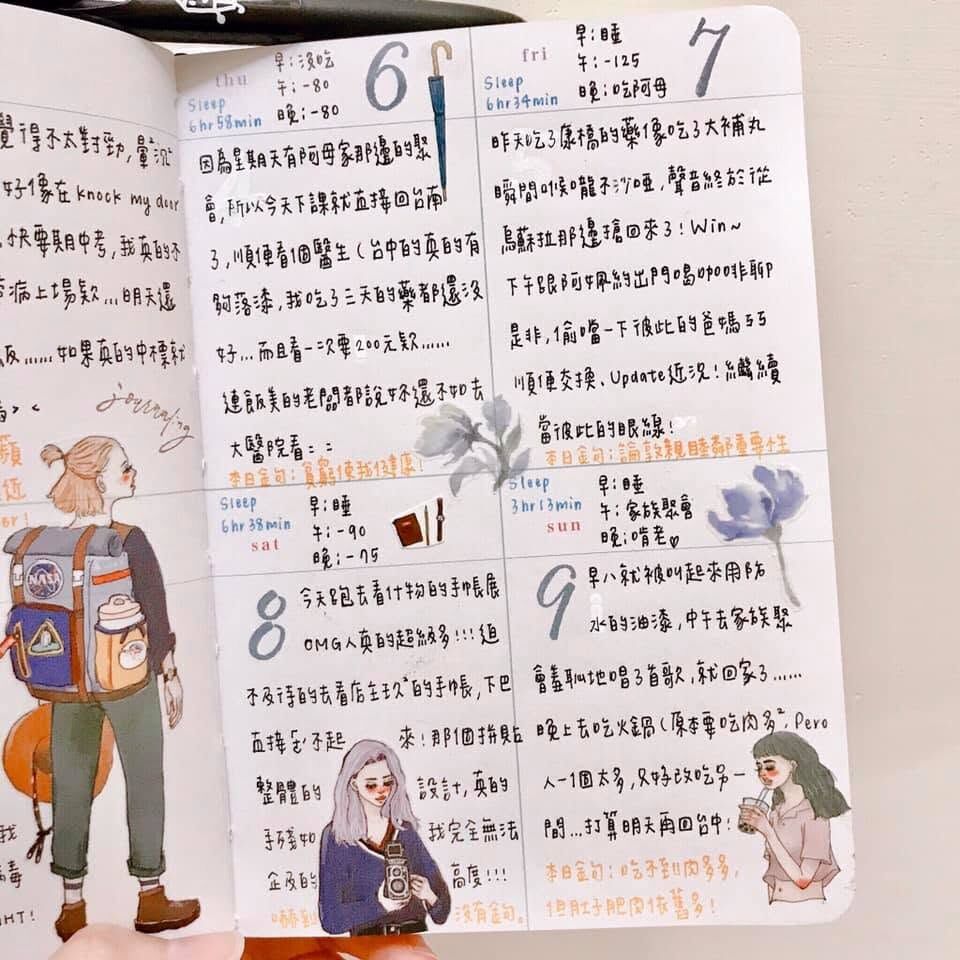 覺得不太對勁,暈²沉²
好像在 knock my door
快要期中考,我真的不
病上場欸...明天還
飯......如果真的中標就
> <
journaling
類
近
NASA
我
毒
thu
6
Sleep
6hr58min
早:沒吃
午:-80
晚:-80
因為星期天有阿母家那邊的聚
會,所以今天下課就直接回台南
了,順便看個醫生(台中的真的有
夠落漆,我吃了三天的藥都還沒
好...而且看一次要200元欸......
連飯美的老闆都說好還不如去
大醫院看= =
本日金句:貧窮使我健康!
fri
7
Sleep
6hr34min
早:睡
午:-125
晚:吃阿母
昨天吃了康橋的藥像吃了大補丸
瞬間喉嚨不沙啞,聲音終於從
烏蘇拉那邊搶回來了!Win~
下午跟阿姵約出門喝咖啡聊
是非,偷噹一下彼此的爸媽ㄎㄎ
順便交換、Update近況!繼續
當彼此的眼線!
本日金句:論敦親睦鄰重要性
Sleep
6hr38min
sat
早:睡
午:-90
晚:-75
8
今天跑去看什物的手帳展
OMG人真的超級多!!!迫
不及待的去看店主玖²的手帳,下巴
直接合不起來!那個拼貼
整體的設計,真的
手殘如我完全無法
企及的高度!!!
嚇到沒有金句。
Sleep
3hr13min
sun
早:睡
午:家族聚會
晚:啃老♡
9
早八就被叫起來用防
水的油漆,中午去家族聚
會羞恥地唱了首歌,就回家了......
晚上去吃火鍋(原本要吃肉多²,Pero
人一個太多,只好改吃另一
間...打算明天再回台中!
本日金句:吃不到肉多多,
但肚子肥肉依舊多!